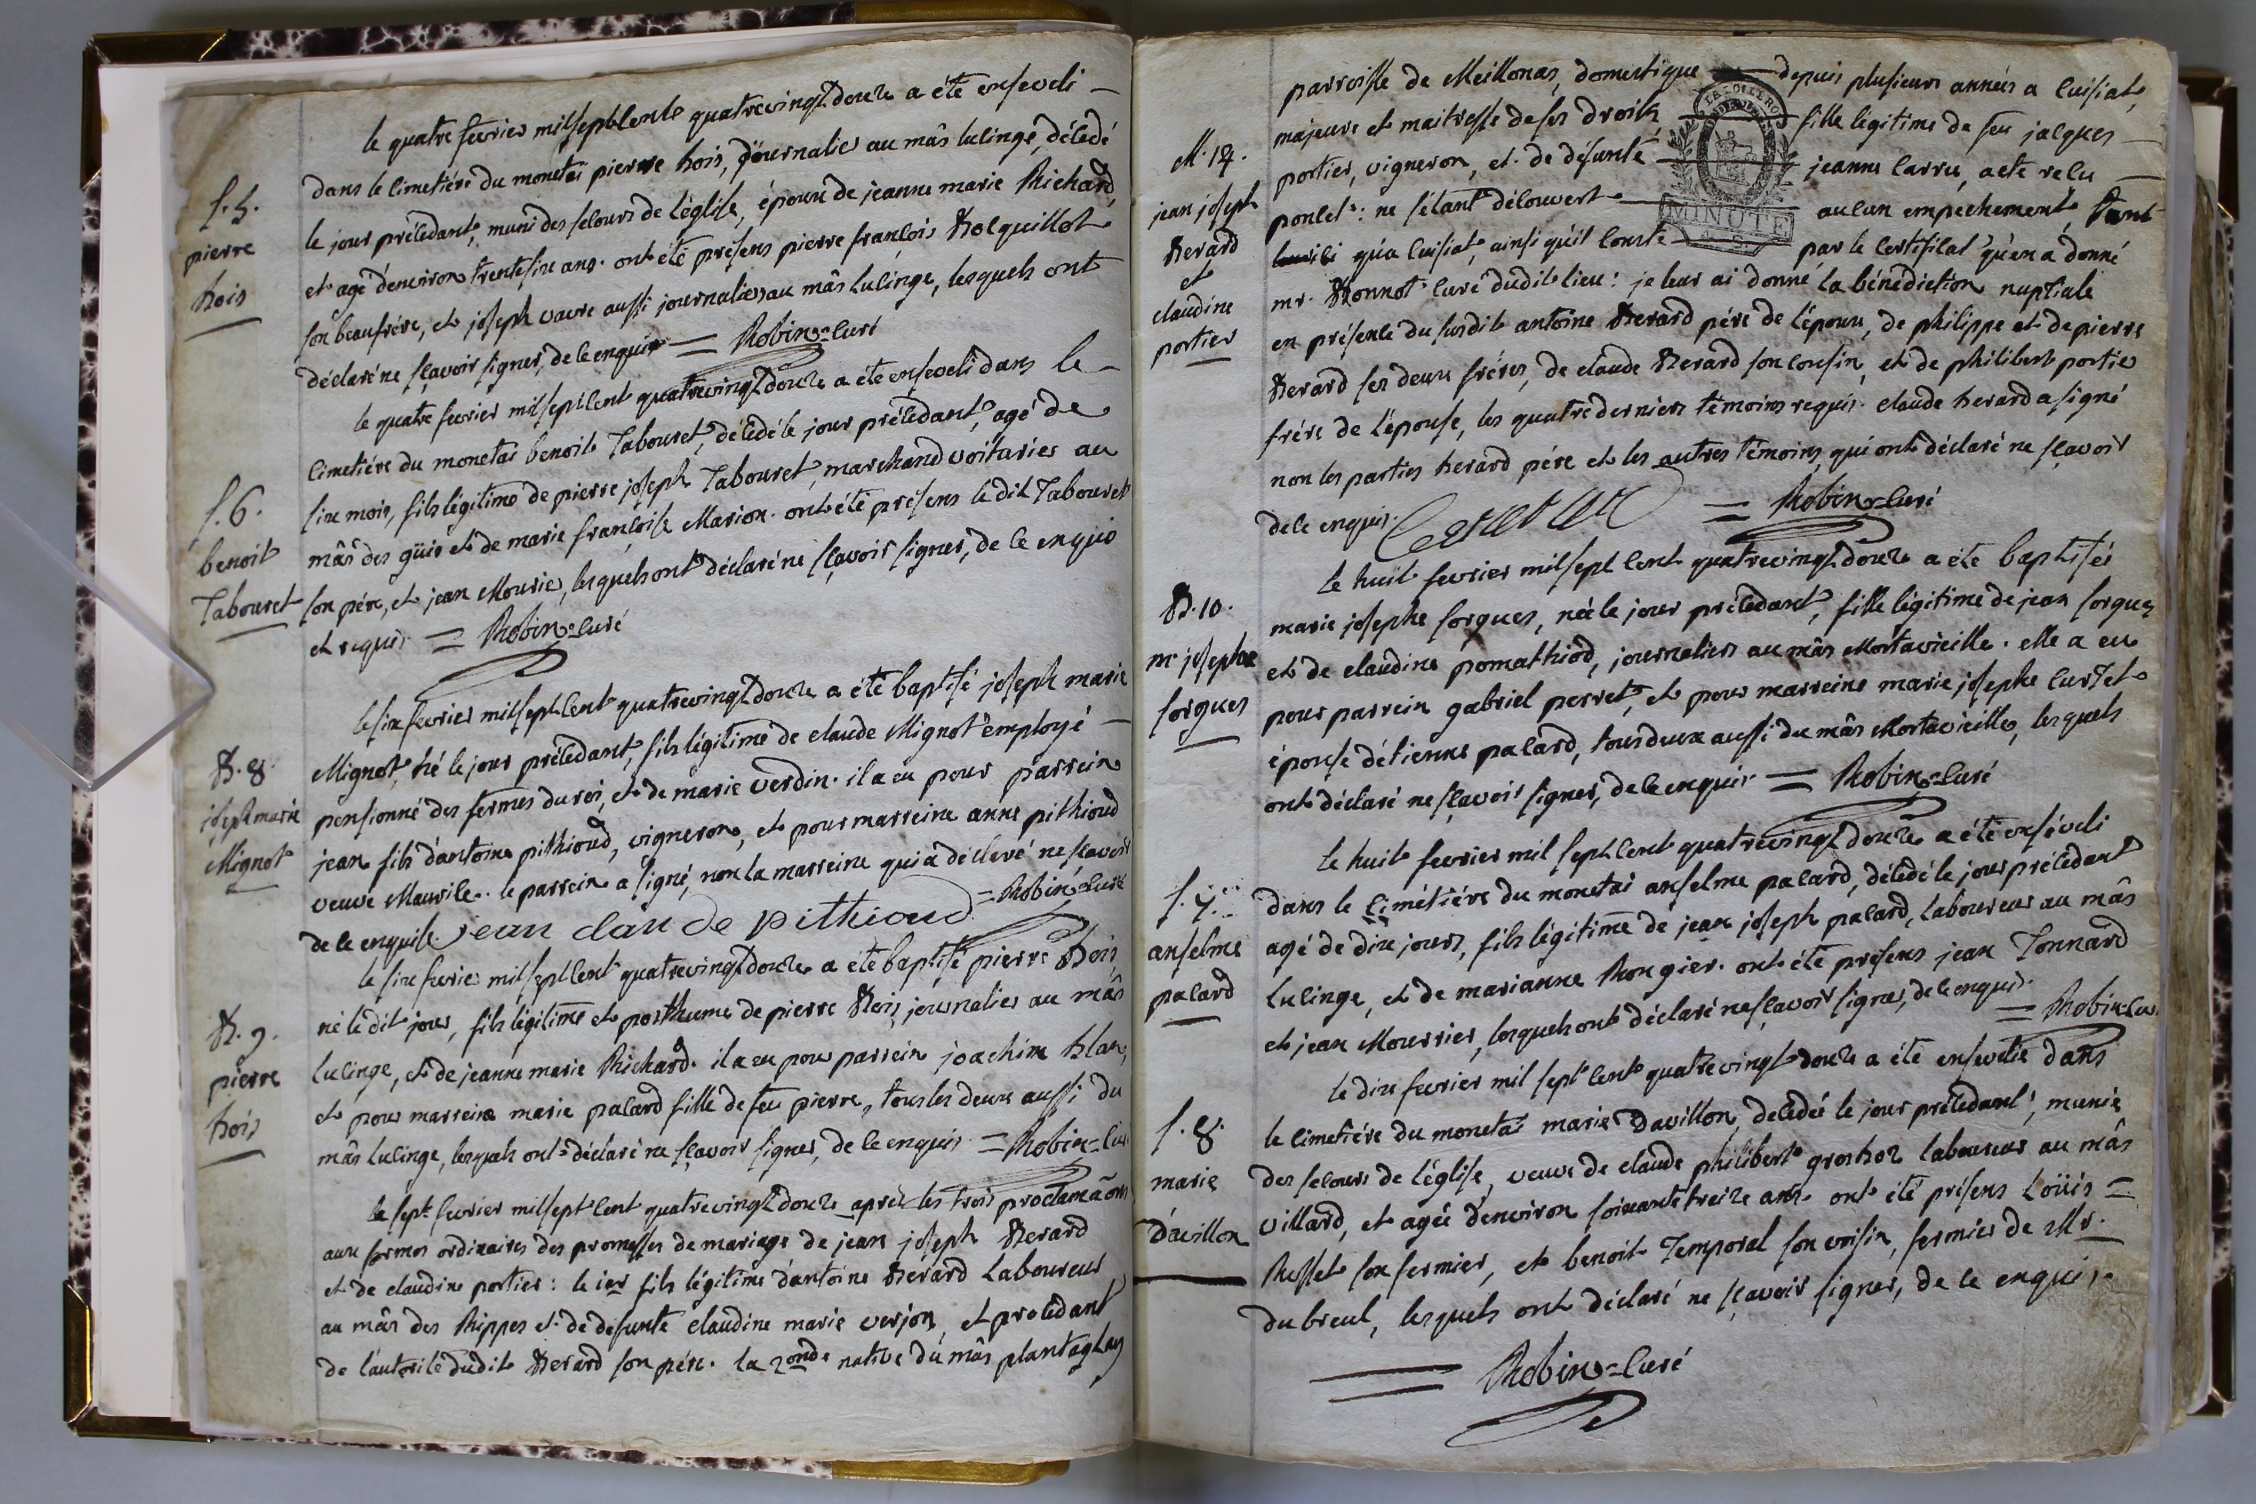 le quatre fevrier mil sept cent quatrevingt douze a été enseveli
S. 5.
pierre
bois
dans le cimetiére du monetai pierre bois, journalier au mâs lucinge, décedé
le jour précedant, muni des secours de l'église, époux de jeanne marie Richard,
et agé d'environ trente six ans. ont été présens pierre françois Bocquillot
son beaufrére, et joseph vavre aussi journaliers au mâs lucinge, lesquels ont
déclaré ne sçavoir signer, de ce enquis = Robin=curé
le quatre fevrier mil sept cent quatrevingt douze a été enseveli dans le
S. 6.
benoit
Tabouret
cimetiére du monetai benoit Tabouret, décedé le jour précedant, agé de
six mois, fils légitime de pierre joseph Tabouret, marchand voiturier au
mâs des guis et de marie françoise Marion. ont été présens le dit Tabouret
son pére, et jean Mourier, lesquels ont déclaré ne sçavoir signer, de ce enquis
et requis = Robin=curé
le six fevrier mil sept cent quatrevingt douze a été baptisé joseph marie
B. 8.
joseph marie
Mignot
Mignot, né le jour précedant, fils légitime de claude Mignot employé
pensionné des fermes du roi, et de marie verdin. il a eu pour parrein
jean fils d'antoine pithioud, vigneron, et pour marreine anne pithioud
veuve Maurice. le parrein a signé, non la marreine qui a déclaré ne sçavoir
de ce enquise jean clau de pithioud = Robin=curé
le six fevrier mil sept cent quatrevingt douze a été baptisé pierre Bois,
B. 9.
pierre
bois
né le dit jour, fils légitime et posthume de pierre Bois, journalier au mâs
lucinge, et de jeanne marie Richard. il a eu pour parrein joachim blanc,
et pour marreine marie palard fille de feu pierre, tous les deux aussi du
mâs lucinge, lesquels ont déclaré ne sçavoir signer, de ce enquis = Robin=cur
le sept fevrier mil sept cent quatrevingt douze après les trois proclamaôns
aux formes ordinaires des promesses de mariage de jean joseph Berard
et de claudine portier: le 1er fils légitime d'antoine Berard Laboureur
au mâs des Rippes et de defunte claudine marie verjon, et procedant
de l'autorité dudit Berard son pére. la 2onde native du mâs plantaglay
parroisse de Meillonas, domestique depuis plusieurs années a cuisiat,
majeure et maitresse de ses droits fille légitime de feu jacques
M. 14.
jean joseph
Berard
et
claudine
portier
portier, vigneron, et de défunte jeanne carru, acte relu
poncet: ne s'étant découvert aucun empechement, tant
ici qu'a cuisiat, ainsi qu'il conste par le certificat qu'en a donné
MINUTE
4. S.
mr. Bonnot curé dudit lieu: je leur ai donné la bénédiction nuptiale
en présence du susdit antoine Berard pére de l'époux, de philippe et de pierre
Berard ses deux fréres, de claude Berard son cousin, et de philibert portier
frére de l'épouse, les quatre derniers témoins requis. claude berard a signé
non les parties berard pére et les autres témoins, qui ont déclaré ne sçavoir
de ce enquis. = Robin=curé
le huit fevrier mil sept cent quatrevingt douze a été baptisée
B. 10.
me josephe
sorgues
marie josephe sorgues, née le jour précedant, fille légitime de jean sorgues
et de claudine pomathiod, journaliers au mâs Mortavieille. elle a eu
pour parrein gabriel perret, et pour marreine marie josephe curtet
épouse d'étienne palard, tous deux aussi du mâs Mortavieille, lesquels
ont déclaré ne sçavoir signer, de ce enquis = Robin=curé
le huit fevrier mil sept cent quatrevingt douze a été enséveli
S. 7.
anselme
palard
dans le cimétiére du monetai anselme palard, décedé le jour précedant
agé de dix jours, fils légitime de jean joseph palard, laboureur au mâs
Lucinge, et de marianne Rougier. ont été présens jean Tonnard
et jean Mourrier, lesquels ont déclaré ne sçavoir signer, de ce enquis
= Robin=cur
le dix fevrier mil sept cent quatrevingt douze a été ensevelie dans
S. 8.
marie
Davillon
le cimetiére du monetai marie Davillon, decedée le jour précedant, munie
des secours de l'église, veuve de claude philibert grosboz laboureur au mâs
villard, et agée d'environ soixante treize ans. ont été présens Loüis =
Russet son fermier, et benoit Temporal son voisin, fermier de Mr.
dubreul, lesquels ont déclaré ne sçavoir signer, de ce enquis.
= Robin=curé